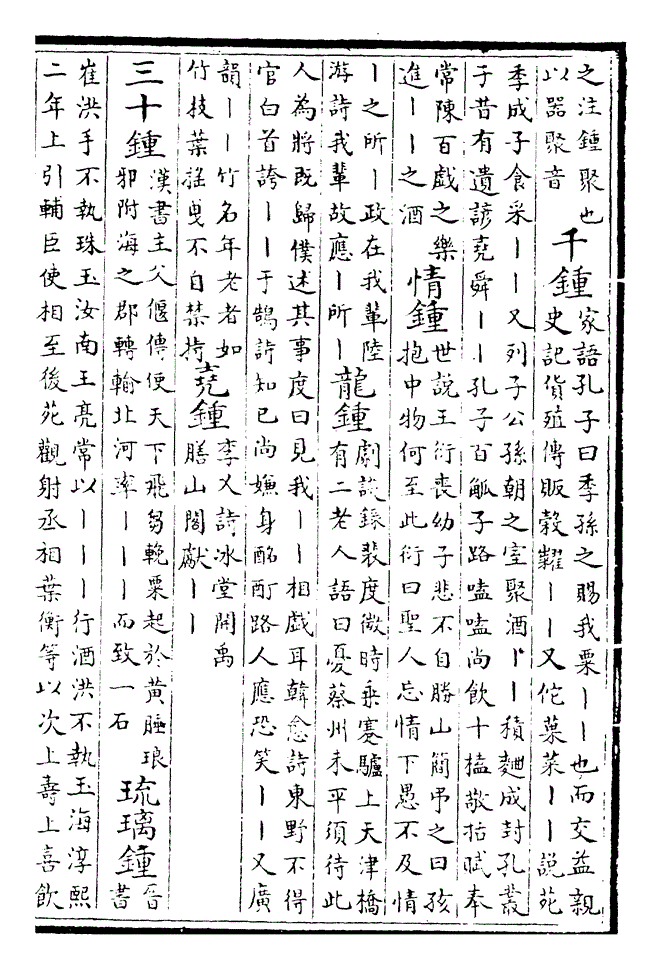 之注鍾聚也
以器聚音
千鍾
家語孔子曰季孫之賜我粟丨丨也而交益親
史記貨殖傳販穀糶丨丨又佗菓菜丨丨說苑
季成子食采丨丨又列子公孫朝之室聚酒丨丨積麯成封孔叢
子昔有遺諺堯舜丨丨孔子百觚子路嗑嗑尚飲十榼敬括賦奉
常陳百戲之樂
進丨丨之酒
情鍾
世說王衍喪幼子悲不自勝山簡弔之曰孩
抱中物何至此衍曰聖人忘情下愚不及情
丨之所丨政在我輩陸
游詩我輩故應丨所丨
龍鍾
劇談錄裴度微時乘蹇驢上天津橋
有二老人語曰憂蔡州未平須待此
人為將既歸僕述其事度曰見我丨丨相戲耳韓愈詩東野不得
官白首誇丨丨于鵠詩知已尚嫌身酩酊路人應恐笑丨丨又廣
韻丨丨竹名年老者如
竹枝葉搖曳不自禁持
堯鍾
李乂詩冰堂開禹
膳山閣獻丨丨
三十鍾
漢書主父偃傳使天下飛芻輓粟起於黄腄琅
邪附海之郡轉輸北河率丨丨丨而致一石
琉璃鍾
晉
書
崔洪手不執珠玉汝南王亮常以丨丨丨行酒洪不執玉海淳熙
二年上引輔臣使相至後苑觀射丞相葉衡等以次上壽上喜飲